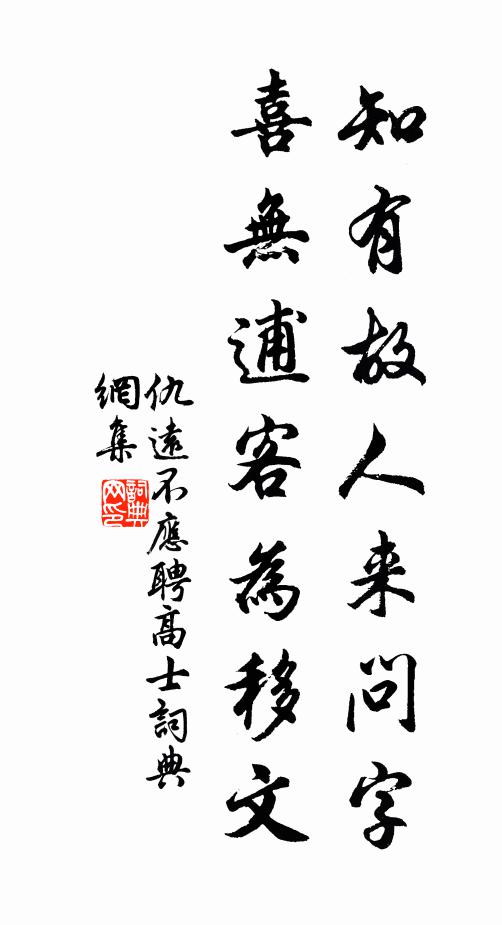 知有故人来問字
喜無逋客為移文
仇遠不應聘高士詞典
網集
詞典網印